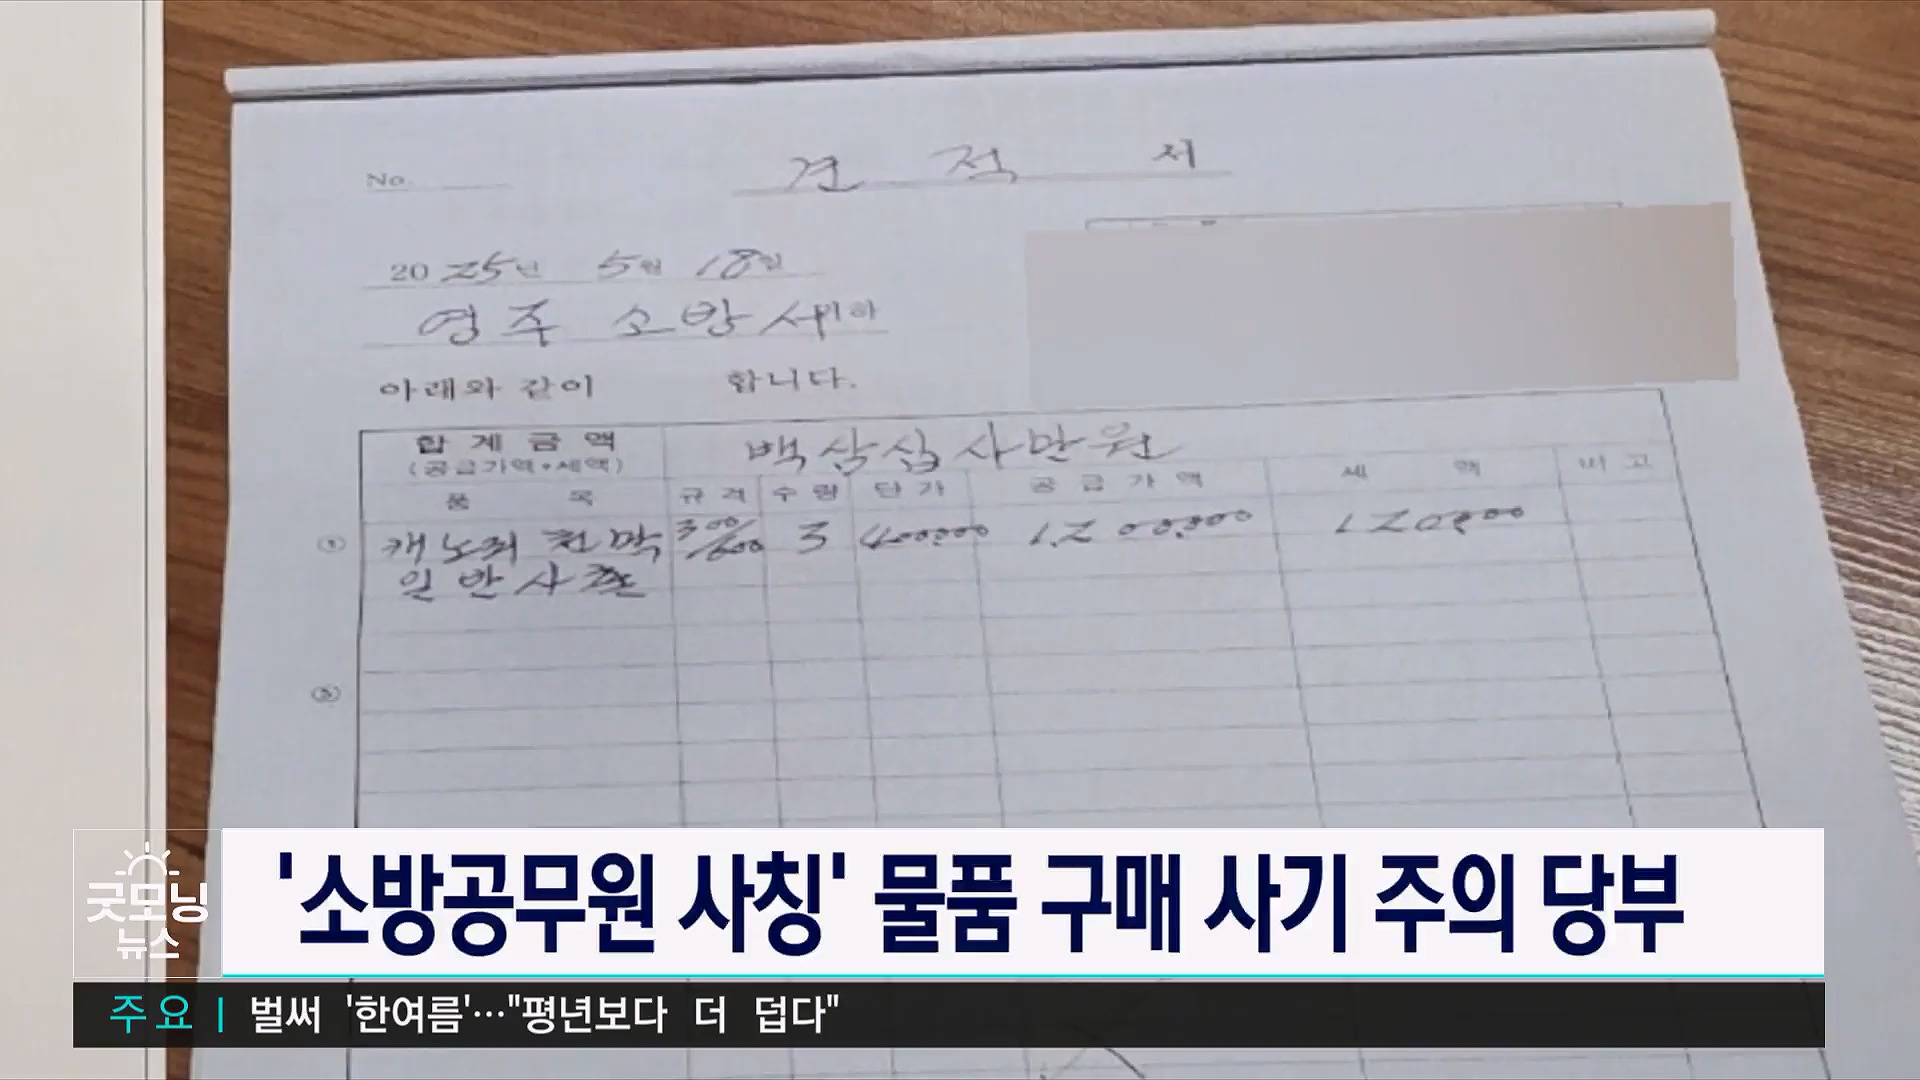 No. 견 적 서
2025년 5월 18일
영주 소방서 귀하
아래와 같이 합니다.
합계금액 백삼십사만원
(공급가액+세액)
품 목 규격 수량 단가 공급가액 세 액 비고
① 캐노피 천막 3 400000 1,200,000 120,000
일반사각
⑤
'소방공무원 사칭' 물품 구매 사기 주의 당부
굿모닝
뉴스
주요 | 벌써 '한여름'…"평년보다 더 덥다"